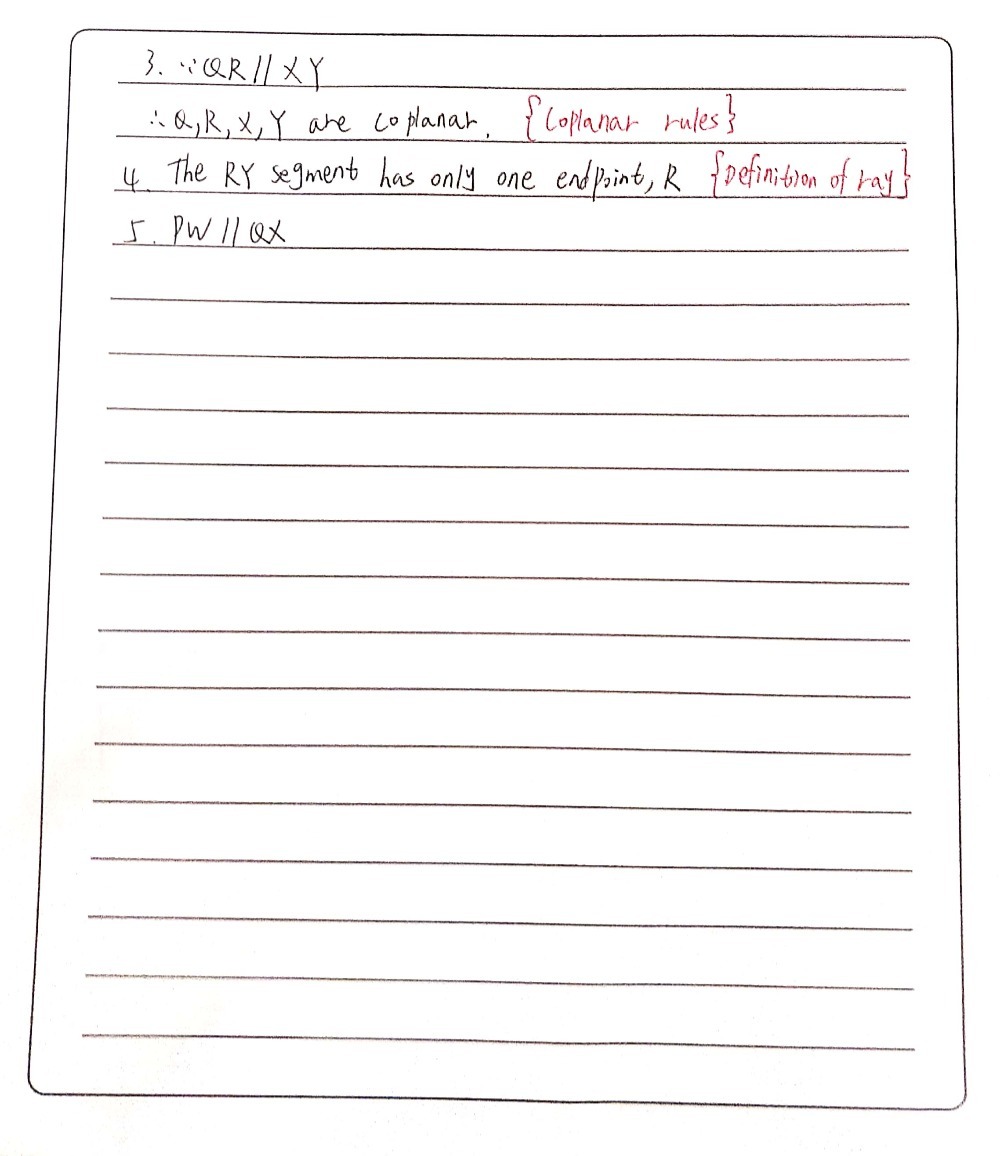 3. ∵QR // XY
∴Q,R,X,Y are coplanar. {Coplanar rules}
4. The RY segment has only one endpoint, R {Definition of ray}
5. PW // QX